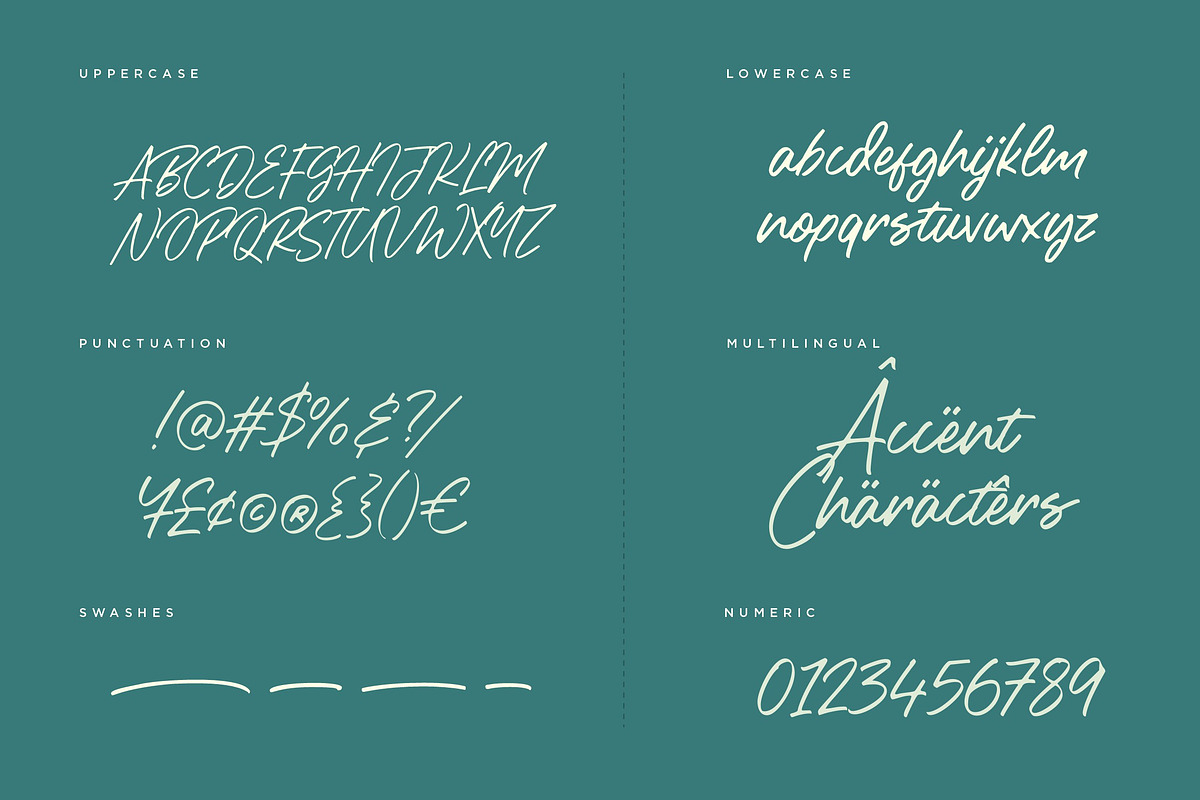 UPPERCASE
ABCDEFGHIJKLM
NOPQRSTUVWXYZ
LOWERCASE
abcdefghijklm
nopqrstuvwxyz
PUNCTUATION
!@#$%&?/
¥£¢©®{}()€
MULTILINGUAL
Âccënt
Chäräctêrs
SWASHES
NUMERIC
0123456789